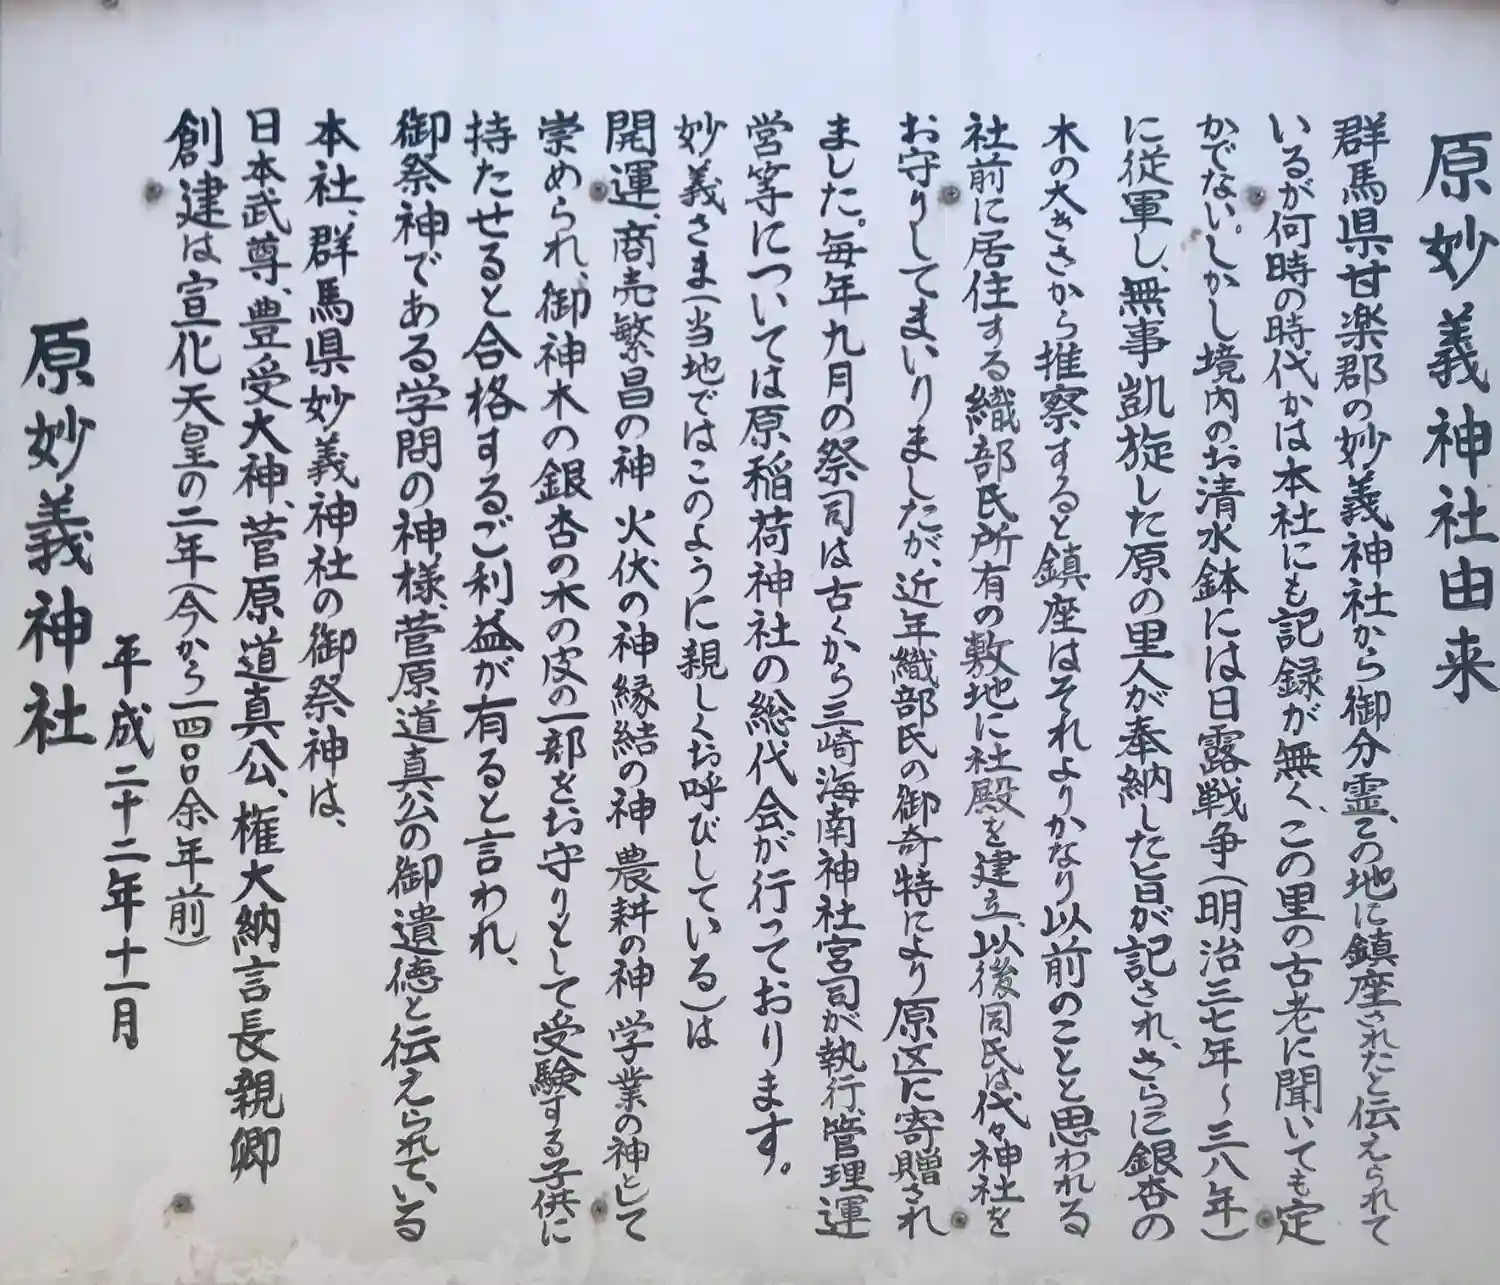 原妙義神社由来
群馬県甘楽郡の妙義神社から御分霊、この地に鎮座されたと伝えられて
いるが何時の時代かは本社にも記録が無く、この里の古老に聞いても定
かでない。しかし境内のお清水鉢には日露戦争(明治三七年～三八年)
に従軍し、無事凱旋した原の里人が奉納した旨が記され、さらに銀杏の
木の大きさから推察すると鎮座はそれよりかなり以前のことと思われる
社前に居住する織部氏所有の敷地に社殿を建立、以後同氏は代々神社を
お守りしてまいりましたが、近年織部氏の御奇特により原区に寄贈され
ました。毎年九月の祭司は古くから三崎海南神社宮司が執行、管理運
営等については原稲荷神社の総代会が行っております。
妙義さま(当地ではこのように親しくお呼びしている)は
開運、商売繁昌の神 火伏の神 縁結の神 農耕の神 学業の神として
崇められ、御神木の銀杏の木の皮の一部をお守りとして受験する子供に
持たせると合格するご利益が有ると言われ、
御祭神である学問の神様、菅原道真公の御遺徳と伝えられている
本社、群馬県妙義神社の御祭神は、
日本武尊、豊受大神、菅原道真公、権大納言長親卿
創建は宣化天皇の二年(今から一四〇〇余年前)
平成二十二年十一月
原妙義神社